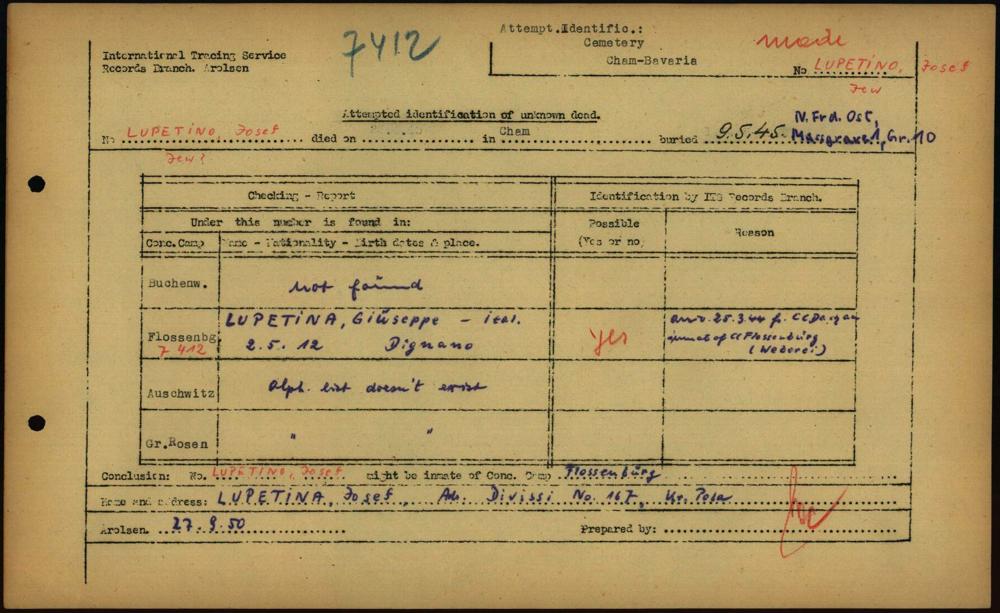 7412
Attempt.Identific.:
Cemetery
Cham-Bavaria
made
No LUPETINO, Josef
Jew
International Tracing Service
Records Branch. Arolsen
Attempted identification of unknown dead.
No LUPETINO, Josef died on in Cham buried 9.5.45. N. Frd. Ost,
Massgrave 1, Gr. 10
Jew?
Checking - Report
Identification by ITS Records Branch.
Under this number is found in:
Possible
(Yes or no)
Reason
Conc.Camp
Name - Nationality - Birth dates & place.
Buchenw.
not found
Flossenbg.
7412
LUPETINA, Giuseppe - ital.
2.5.12 Dignano
yes
arr. 25.3.44 f. CC Dachau
inmate of CC Flossenbürg
(Weberei)
Auschwitz
Alph. list doesn't exist
Gr.Rosen
" "
Conclusion: No. LUPETINO, Josef might be inmate of Conc. Camp Flossenbürg
Name and address: LUPETINA, Josef, Divissi No. 167, Kr. Pola
Arolsen, 27.9.50
Prepared by: